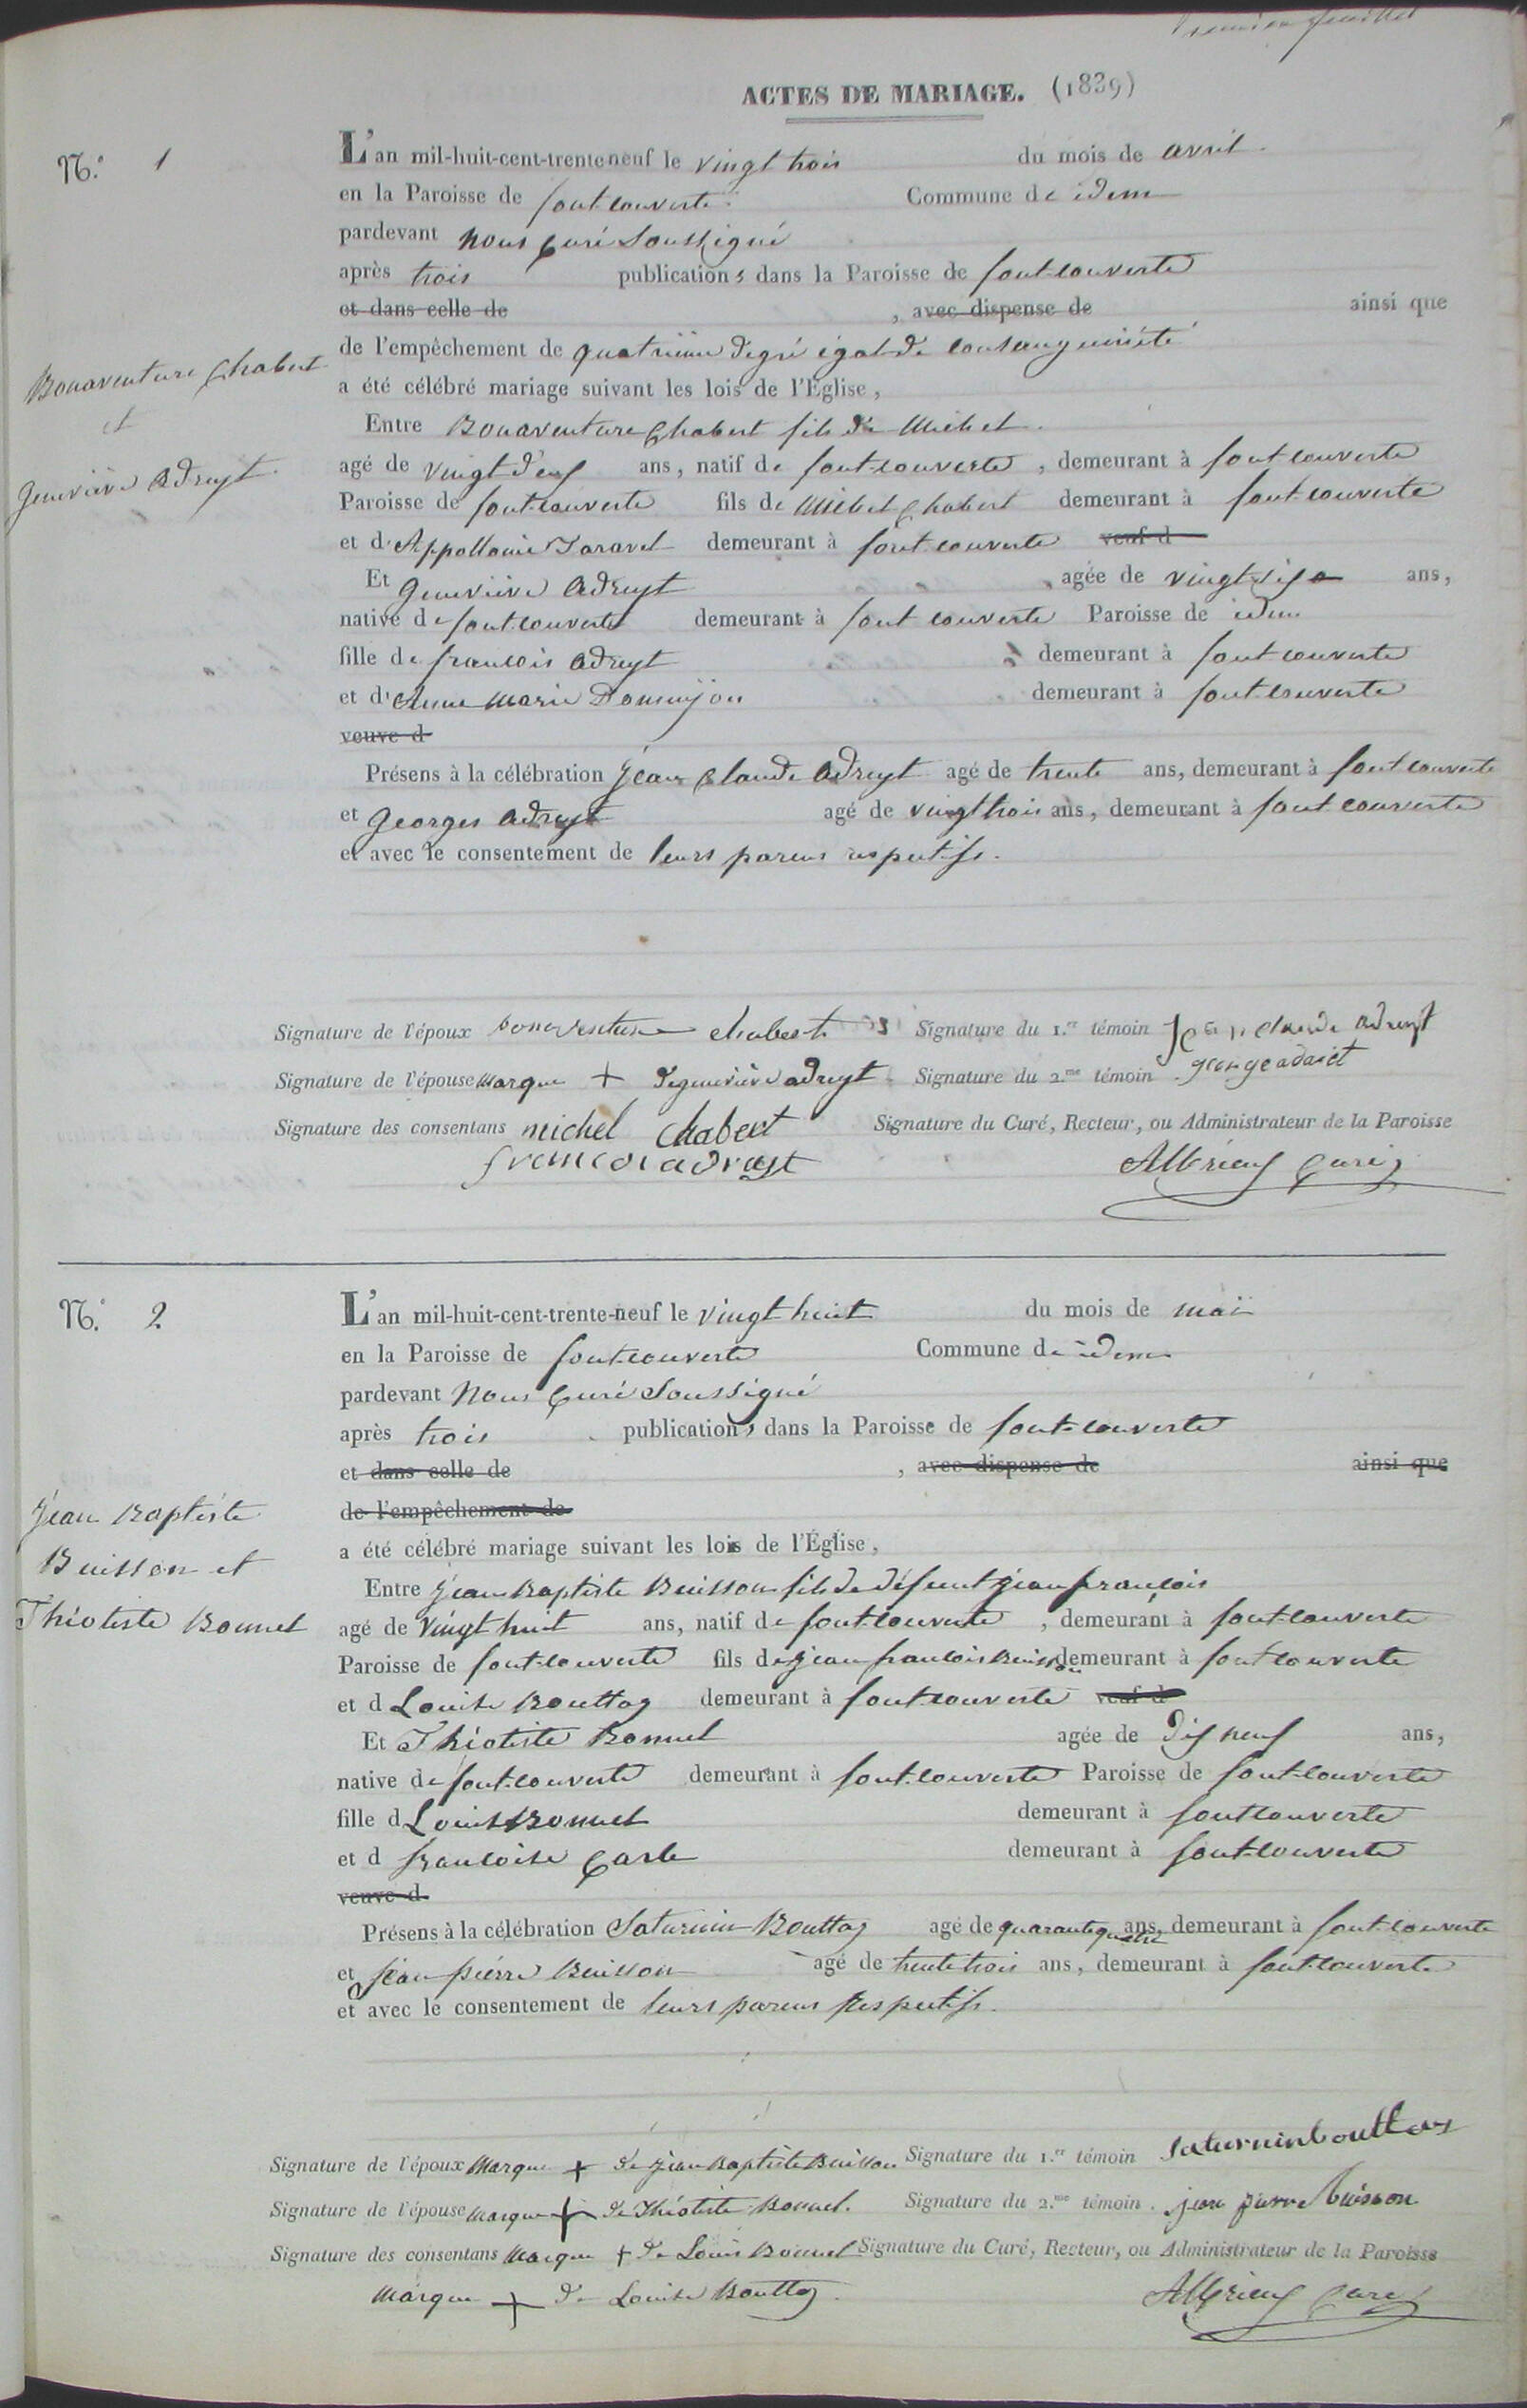 Premier feuillet
ACTES DE MARIAGE. (1839)
N.° 1
L'an mil-huit-cent-trente neuf le vingt trois du mois de avril
en la Paroisse de fontcouverte Commune de idem
pardevant nous Curé Soussigné
après trois publications dans la Paroisse de fontcouverte
et dans celle de , avec dispense de ainsi que
de l'empêchement de quatrième degré égal de consanguinité
a été célébré mariage suivant les lois de l'Église,
Bonaventure Chabert
et
Geneviève Adreyt
Entre Bonaventure Chabert fils de Michel
agé de vingt ans, natif de fontcouverte, demeurant à fontcouverte
Paroisse de fontcouverte fils de Michel Chabert demeurant à fontcouverte
et d'Appollonie Taravel demeurant à fontcouverte veuf d
Et Geneviève Adreyt agée de ans,
native de fontcouverte demeurant à fontcouverte Paroisse de idem
fille de françois Adreyt demeurant à fontcouverte
et d'Anne Marie Domenjon demeurant à fontcouverte
veuve d
Présens à la célébration Jean Claude Adreyt agé de trente ans, demeurant à fontcouverte
et Georges Adreyt agé de vingt trois ans, demeurant à fontcouverte
et avec le consentement de leurs parens respectifs.
Signature de l'époux bonaventure chabert Signature du 1.er témoin Jean claude Adreyt
Signature de l'épouse Marque + de geneviève adreyt Signature du 2.me témoin george adrait
Signature des consentans michel Chabert Signature du Curé, Recteur, ou Administrateur de la Paroisse
francoi adrayt Albrieux Curé
N.° 2
L'an mil-huit-cent-trente-neuf le vingt huit du mois de mai
en la Paroisse de fontcouverte Commune de idem
pardevant Nous Curé Soussigné
après trois publications dans la Paroisse de font-couverte
et dans celle de , avec dispense de ainsi que
de l'empêchement de
a été célébré mariage suivant les lois de l'Église,
Jean Baptiste
Buisson et
Théotiste Bonnel
Entre Jean Baptiste Buisson fils de défunt Jean françois
agé de vingt huit ans, natif de fontcouverte, demeurant à fontcouverte
Paroisse de fontcouverte fils de Jean françois Buisson demeurant à fontcouverte
et d Louise Bouttaz demeurant à fontcouverte veuf d
Et Théotiste Bonnel agée de dix neuf ans,
native de fontcouverte demeurant à fontcouverte Paroisse de fontcouverte
fille d Louis Bonnel demeurant à fontcouverte
et d françoise Carle demeurant à fontcouverte
veuve d
Présens à la célébration Saturnin Bouttaz agé de quarante quatre ans, demeurant à fontcouverte
et Jean pierre Buisson agé de trente trois ans, demeurant à fontcouverte
et avec le consentement de leurs parens Respectifs.
Signature de l'époux Marque + de Jean Baptiste Buisson Signature du 1.er témoin saturnin bouttaz
Signature de l'épouse marque + de Théotiste Bonnel. Signature du 2.me témoin jean pierre buisson
Signature des consentans Marque + de Louis Bonnel Signature du Curé, Recteur, ou Administrateur de la Paroisse
Marque + de Louise Bouttaz. Albrieux Curé